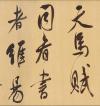 天馬賦
同者書
者維